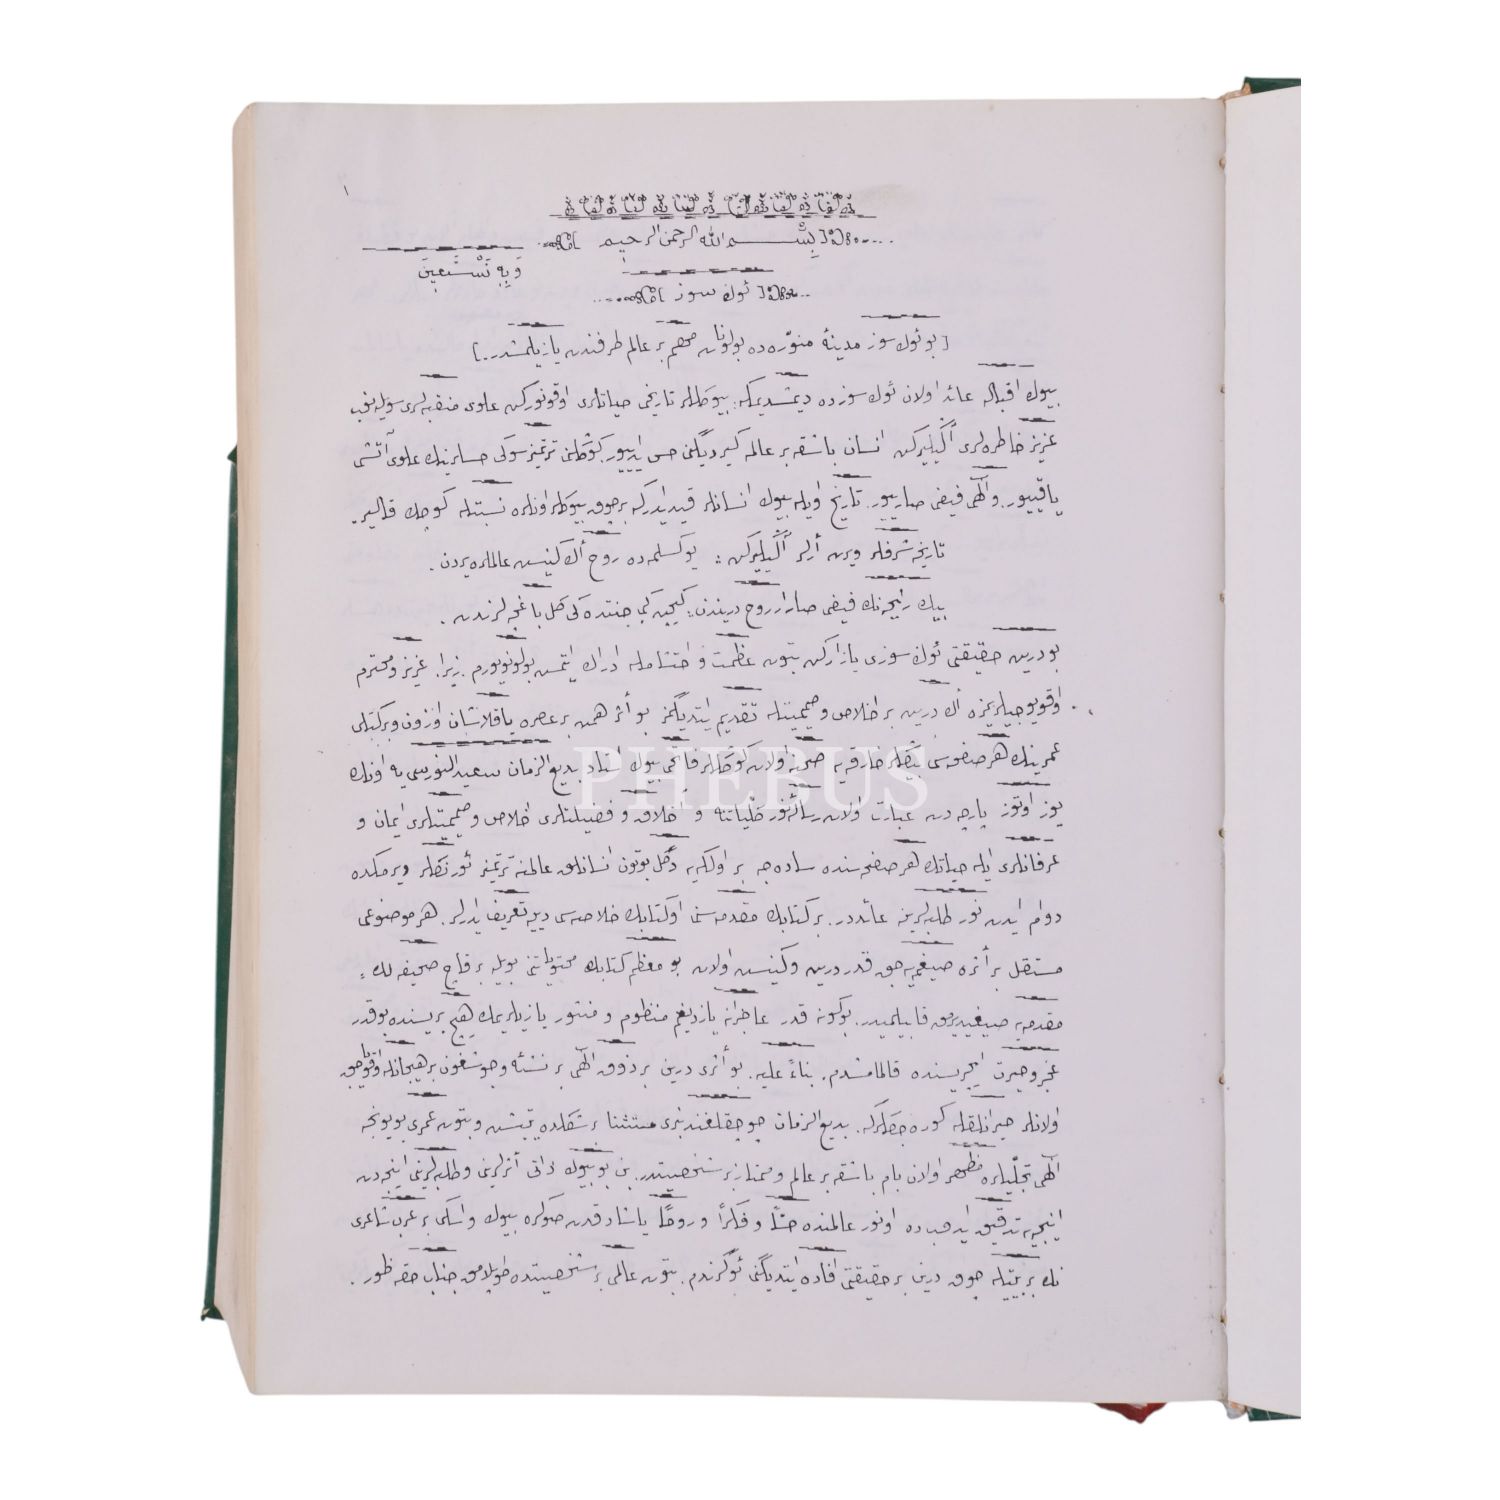 ١
بِسْمِ اللّٰه الرحمن الرحيم
وَبِهِ نَسْتَعِينَ
ئوڭ سوز
[ بو ئوڭ سوز مدينۀ منوّره‌ده بولونان مهم بر عالم طرفندن يازيلمشدر. ]
بيوك اقباله عائد اولان ئوڭ سوزده ديمشديمكه: بيوكلرڭ تاريخى حياتلرى اوقونوركن علوى منقبه‌لرى سويله‌نوب
عزيز خاطره‌لرى آڭيليركن انسان باشقه بر عالمه كيرديگنى حس ايدييور. كوڭلنى ترتميز سوگى حسلرينڭ علوى آتشى
ياقييور. والٓهى فيضى صارييور. تاريخ اويله بيوك انسانلر قيد ايدر كه بر چوق بيوكلر اونلره نسبتله كوچك قالير.
تاريخه شرفلر ويرن أرلر آڭيليركن : يوكسلمده روح أڭ كنيش عالملره يردن .
بيڭ رايحه‌نڭ فيضى صارار روح دريندن : كيچمه كبى جنتده‌كى كل باغچه‌لرندن .
بو درين حقيقتى ئوڭ سوزى يازاركن بتون عظمت و احتشاميله ادراك ايتمش بولونويورم. زيرا. عزيز و محترم
اوقويوجيلريمزه أڭ درين بر اخلاص و صميميتله تقديم ايتديگمز بو أثر همن بر عصره ياقلاشان اوزون و بركتلى
عمرينڭ هر صفحه‌سى بيڭلر خارقه‌يه صحنه اولان كوڭللر فاتحى بيوك استاد بديع الزمان سعيد النورسى يه اونڭ
يوز اوتوز پارچه‌دن عبارت اولان رسالۀ نور كلياتنه و اخلاق و فضيلتلرى اخلاص و صميميتلرى ايمان و
عرفانلرى ايله حياتڭ هر صفحه‌سنده ساده‌جه بر اولكه‌يه دگل بوتون انسانلق عالمنه ترتميز ئورنكلر ويرمكده
دوام ايدن نور طلبه‌لرينه عائددر. بر كتابڭ مقدمه‌سى او كتابڭ خلاصه‌سى دييه تعريف ايدرلر. هر موضوعى
مستقل بر أثره صيغميه‌جق قدر درين و كنيش اولان بو معظم كتابڭ محتوياتى بويله بر قاچ صحيفه‌لك
مقدمه‌يه صيغديريق قابيلميدر. بوكونه قدر عاجزانه يازديغم منظوم و منثور يازيلريمڭ هيچ بريسنده بو قدر
عجز و حيرت ايچريسنده قالمامشدم. بناءً عليه. بو أثرى درين بر ذوق الٓهى بر نشئه و جوشغون بر هيجانله اوقوياجق
اولانلر حيرانلقله كوره‌جكلركه. بديع الزمان چوجقلغندنبرى مستثنا بر شكلده يتيشن و بتون عمرى بويونجه
الٓهى تجلّيلره مظهر اولان بام باشقه بر عالم و ممتاز بر شخصيتدر. بن بو بيوك ذاتى أثرلرينى و طلبه‌لرينى اينجه‌دن
اينجه‌يه تدقيق ايدوبده او نور عالمنده حسًّا و فكرًا و روحًا ياشادقدن صوكره بيوك و اسكى بر عرب شاعرى
نڭ بر بيتيله چوق درين بر حقيقتى افاده ايتديگنى ئوگرندم. بتون عالمى بر شخصيتده طوپلامق جناب حقه ظور .
PHEBUS